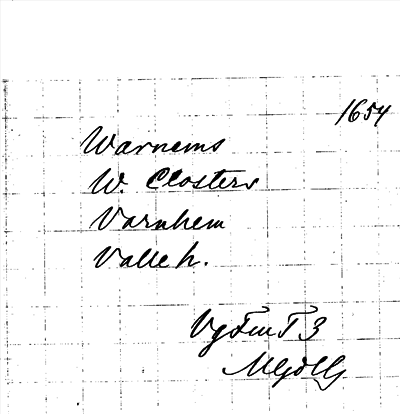 1654
Warnems
W. Closters
Varnhem
Valle h.
VgFmT 3